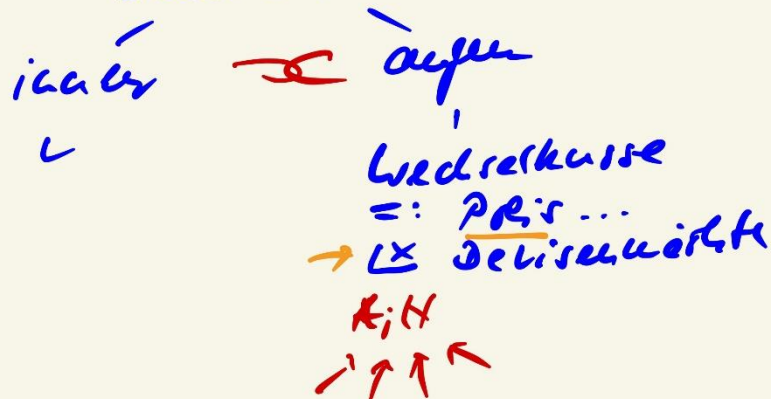 innen außen
Wechselkurse
=: Preis ...
→ Devisenmärkte
A; N